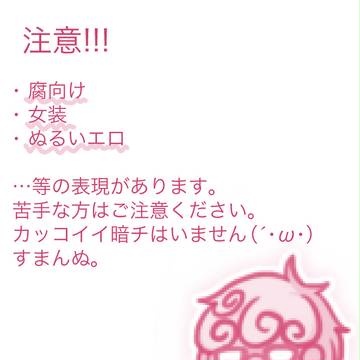 注意!!!
・腐向け
・女装
・ぬるいエロ
…等の表現があります。
苦手な方はご注意ください。
カッコイイ暗チはいません(´･ω･)
すまんぬ。